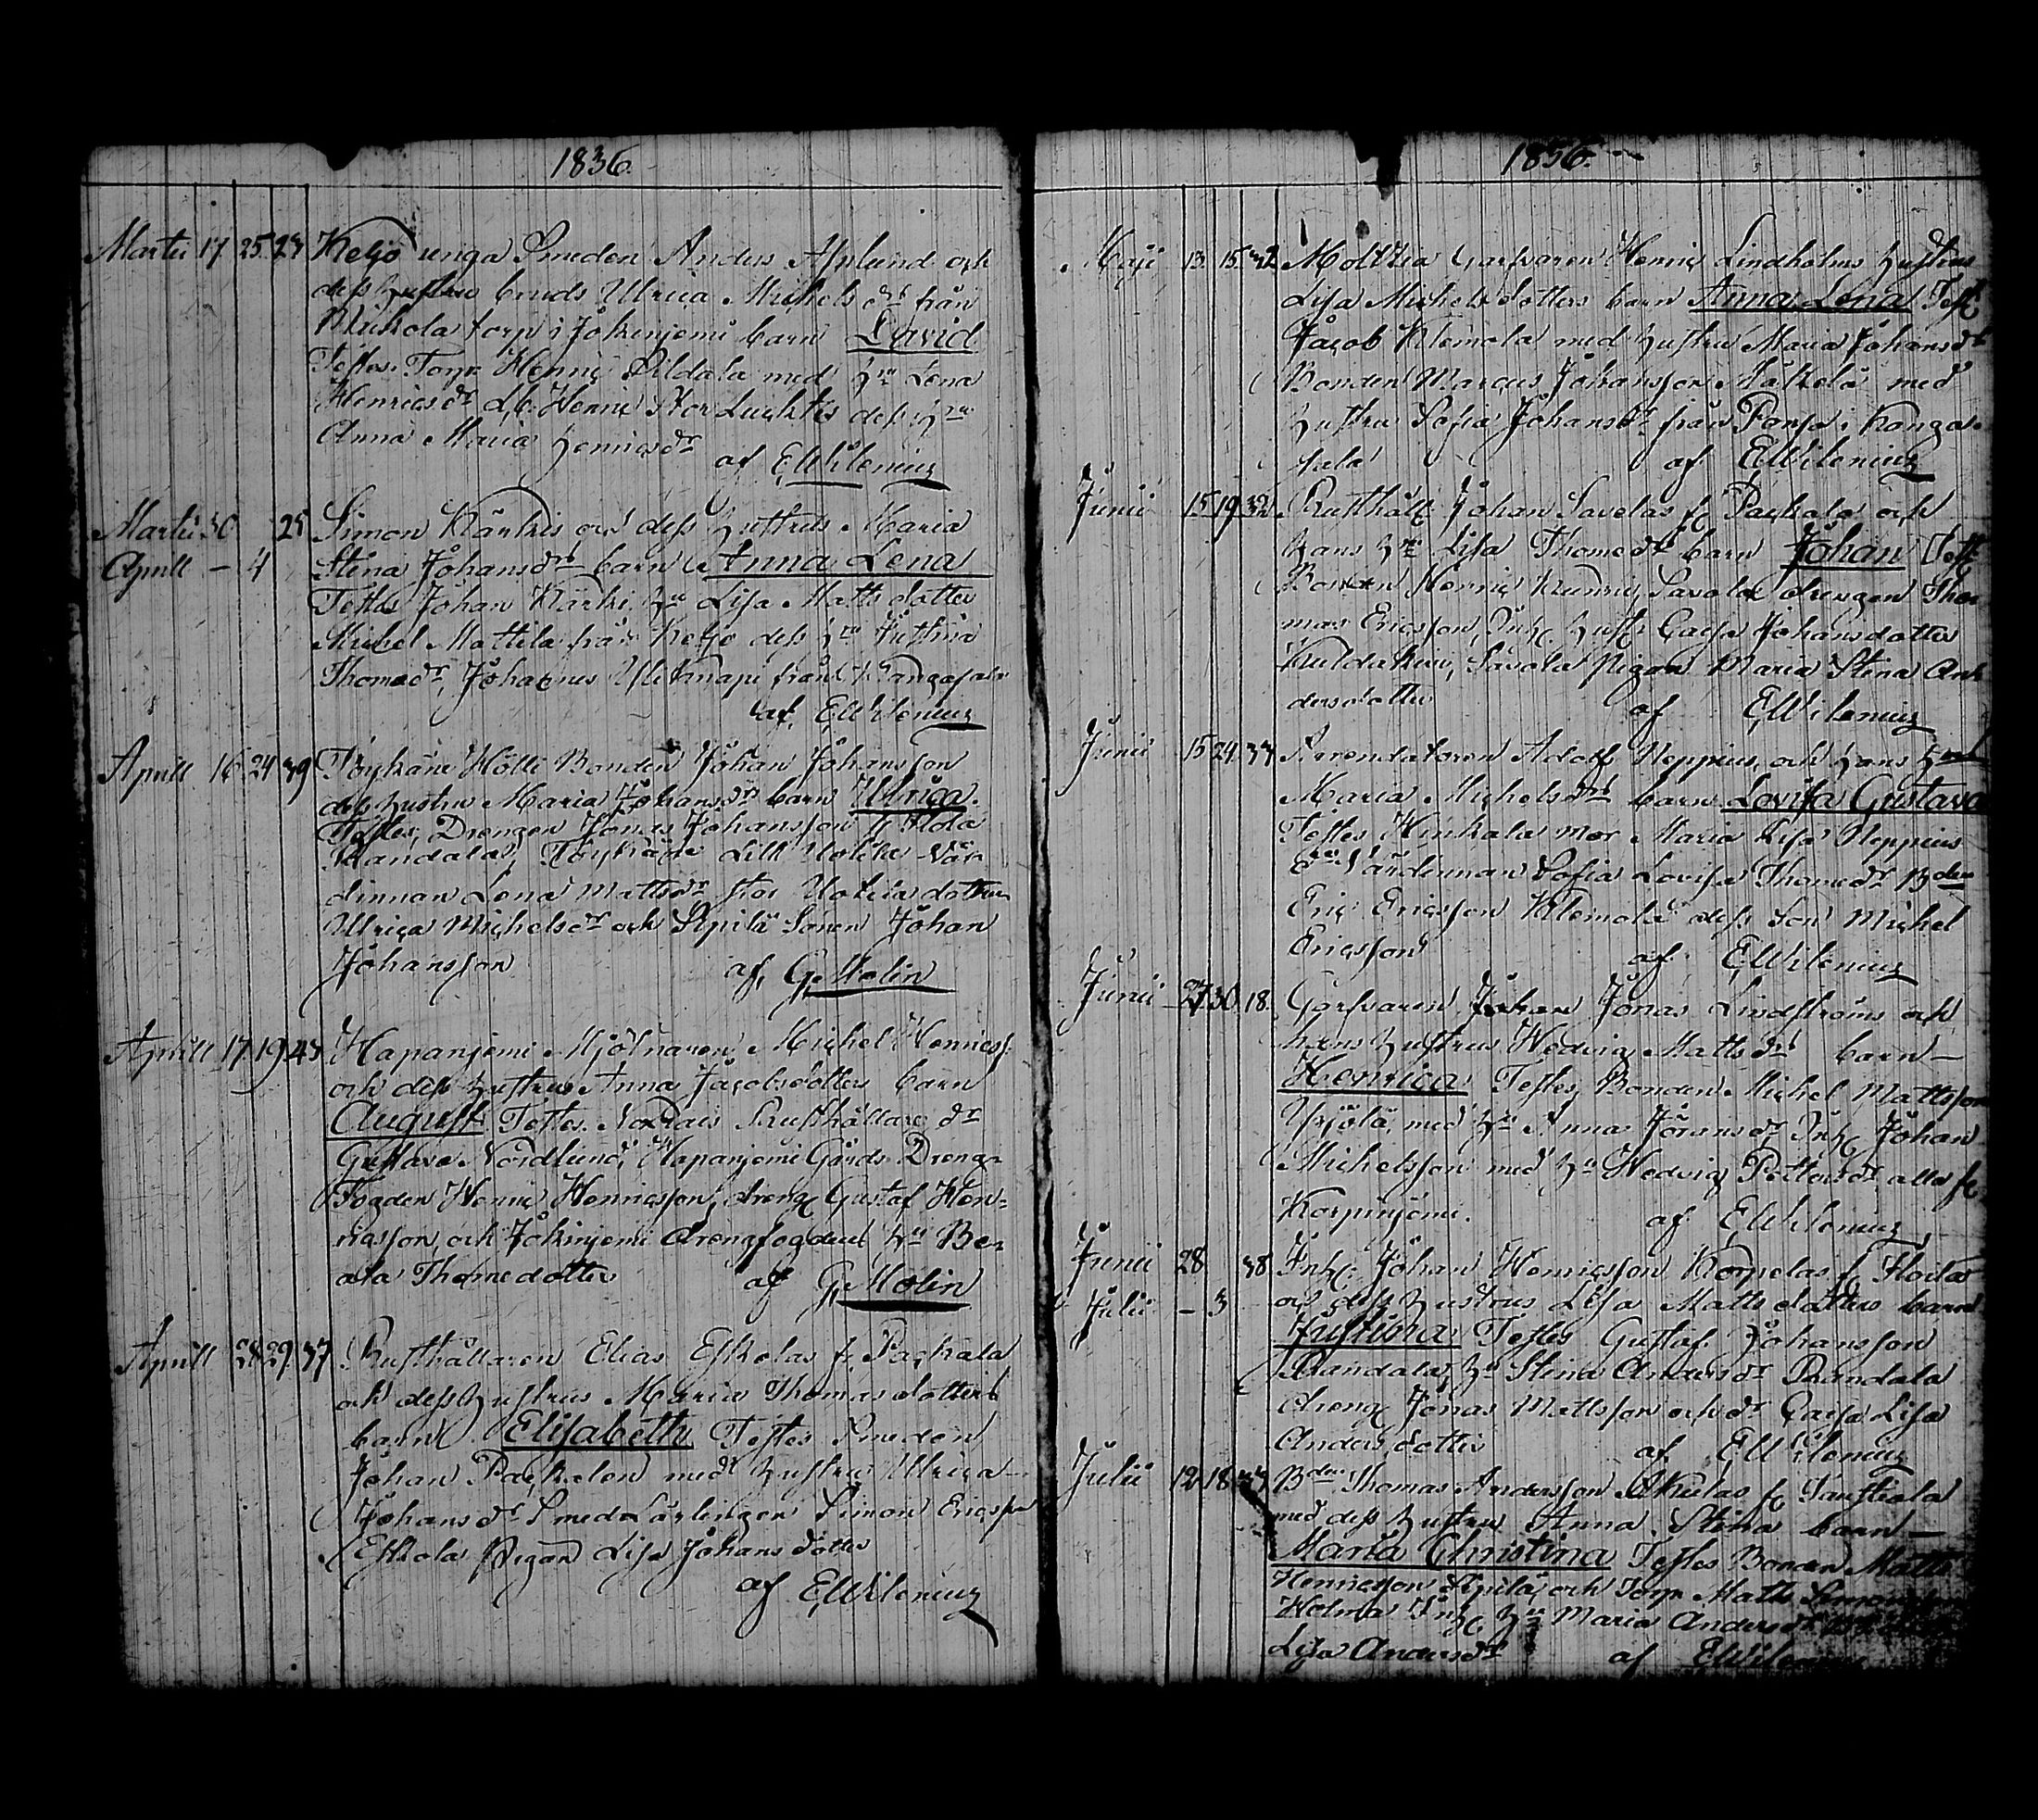 1836.
Martii 17 25 23 Keljo unga Smeden Anders Asplund och
dess hustru bruds Ulrica Michels dr från
Muckola torp i Jokinjemi barn David
Testes. Torp. Henric Pildala med hu Lena
Henricsdr. Henric Stor Luchtis dess hru
Anna Maria Henricsdr
af EWilenius
Martii 30 25 Simon Kärkis och dess hustrus Maria
Aprill – 4 Stina Johansdrs barn Anna Lena
Testes Johan Kärki, hu Lisa Matts dotter
Michel Mattila från Keljo dess hru Justina
Thomædr, Johannes från Kangasala
af EWilenius
Aprill 16 24 39 Töykäne Hölli Bonden Johan Johansson
dess hustru Maria Johansdrs barn Ulrica.
Testes, Drengen Jonas Johansson
Randala, Töykäne Lill Uotila Vär-
dinnan Lena Mattsdr Stor Uotila dottren
Ulrica Michelsdr och Sipilä Sonen Johan
Johansson af G. Molin
Aprill 17 19 43 Hapanjemi Mjölnaren Michel Henricss:
och dess hustrus Anna Jacobsdotters barn
August Testes. Rusthållare dr
Gustava Nordlund, Hapanjemi Gårds Drengs-
Fogden Henric Henricsson, dreng Gustaf Hen-
ricsson och Jokinjemi drengfogdens hu Be-
ata Thomædotter af G. Molin
Aprill 28 29 37 Rusthållaren Elias Eskolas f. Packala
och dess hustrus Maria Thomasdotters
barn Elisabeth Testes Smeden
Johan Packalen med hustru Ulrica
Johansdr Smeds Lärlingen Simon Ericsson
Eskola Pigan Lisa Johansdotter
af EWilenius
1836.
Maji 13 15 32 Moltzia Garfvaren Henric Lindholms hustrus
Lisa Michels dotters barn Anna Lena Test
Jacob Klemola med hustru Maria Johansdr
Bonden Marcus Johansson Mälkelä med
hustru Sofia Johansdr från Ponsa i Kanga-
sala af EWilenius
Junii 15 19 32 Rusthåll: Johan Savolas f. Packala och
hans hru Lisa Thomædrs barn Johan Test
Bonden Henric Savola drengen Tho-
mas Ericsson, Inh: hust: Caisa Johansdotter
Savola Pigan Maria Stina An-
dersdotter af EWilenius
Junii 15 24 37 Arrendatoren Adolf Neppius och hans
Maria Michelsdrs barn Lovisa Gustava
Testes Hinkala mor Maria Lisa Neppius
Värdinnan Sofia Lovisa Thomædr Bden
Eric Ericsson Klemola dess Son Michel
Ericsson af EWilenius
Junii 27 30 18 Garfvaren Jonas Lindströms och
hans hustrus Hedvig Mattsdrs barn –
Henrica Testes Bonden Michel Mattsson
Yrjölä, med hu Anna Göransdr, Inh: Johan
Michelsson med hu Hedvig Pettersdr alla f.
Korpinjemi. af EWilenius
Junii 28 38 Inh: Johan Henricsson Korpelas f.
Julii – 3 och dess hustrus Lisa Matts dotters barn
Justina Testes Gustaf Johansson
Randala, hu Stina Andersdr Randala
dreng Jonas Mattsson och dr Caisa Lisa
Andersdotter af EWilenius
Julii 12 18 33 Bden Thomas Andersson f.
med dess hustru Anna Stina barn –
Maria Christina Testes Bonden Matts
Henricsson Sipilä, och Torp Matts
Holma Inh: hu Maria Andersdr
Lisa Andersdr af EWilenius